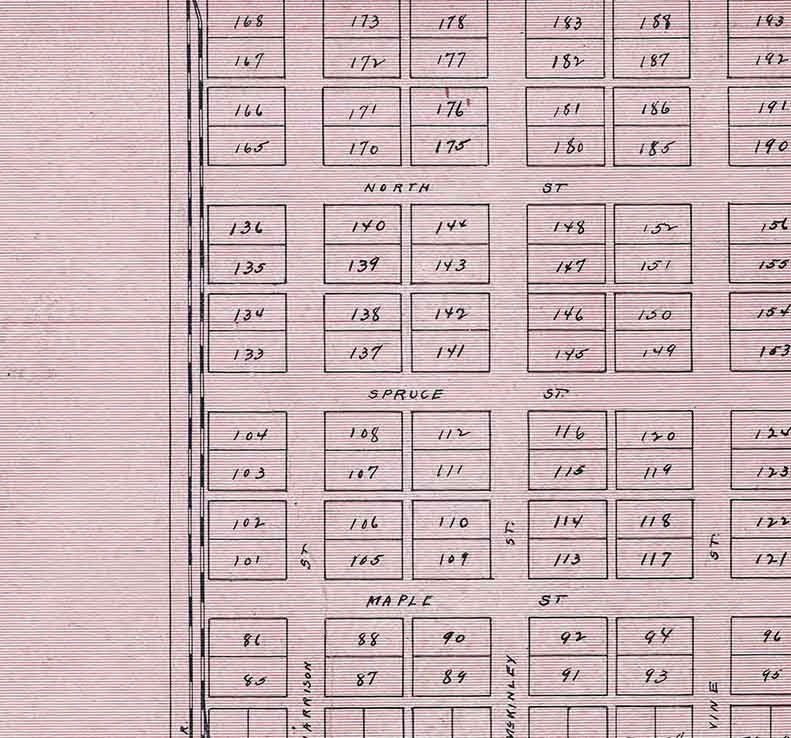 168 173 178 183 188 193
167 172 177 182 187 192
166 171 176 181 186 191
165 170 175 180 185 190
NORTH ST
136 140 144 148 152 156
135 139 143 147 151 155
134 138 142 146 150 154
133 137 141 145 149 153
SPRUCE ST.
104 108 112 116 120 124
103 107 111 115 119 123
102 106 110 114 118 122
101 105 109 113 117 121
ST. ST. ST.
MAPLE ST
86 88 90 92 94 96
85 87 89 91 93 95
HARRISON MCKINLEY VINE
R.